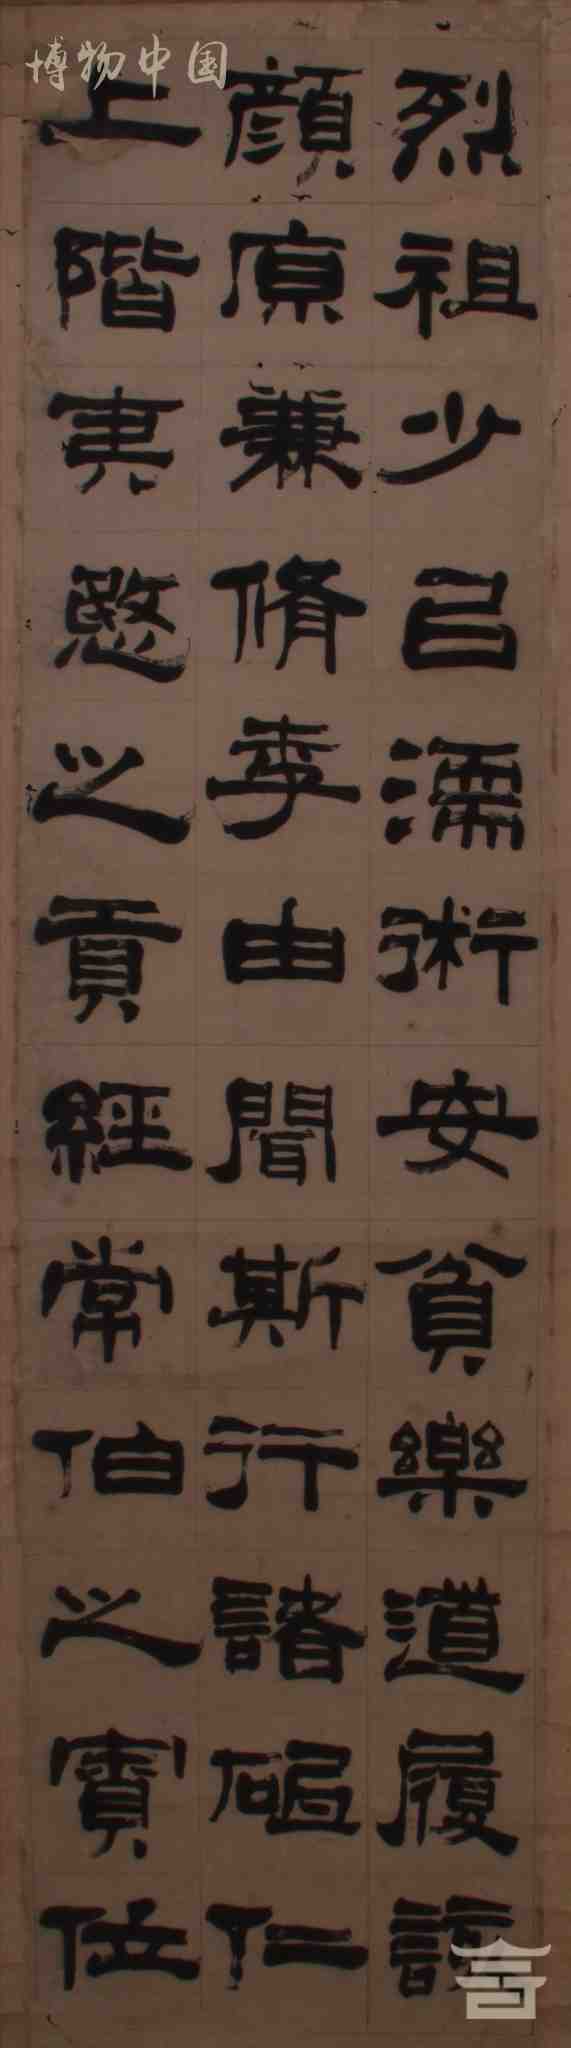 博物中国
烈祖少㠯濡術安貧樂道履該
顏原兼脩季由聞斯行諸砥仁
上階夷愍之貢經常伯之賓位